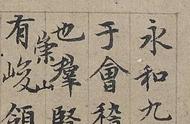 永和九
于會稽
也羣賢
崇山
有峻領